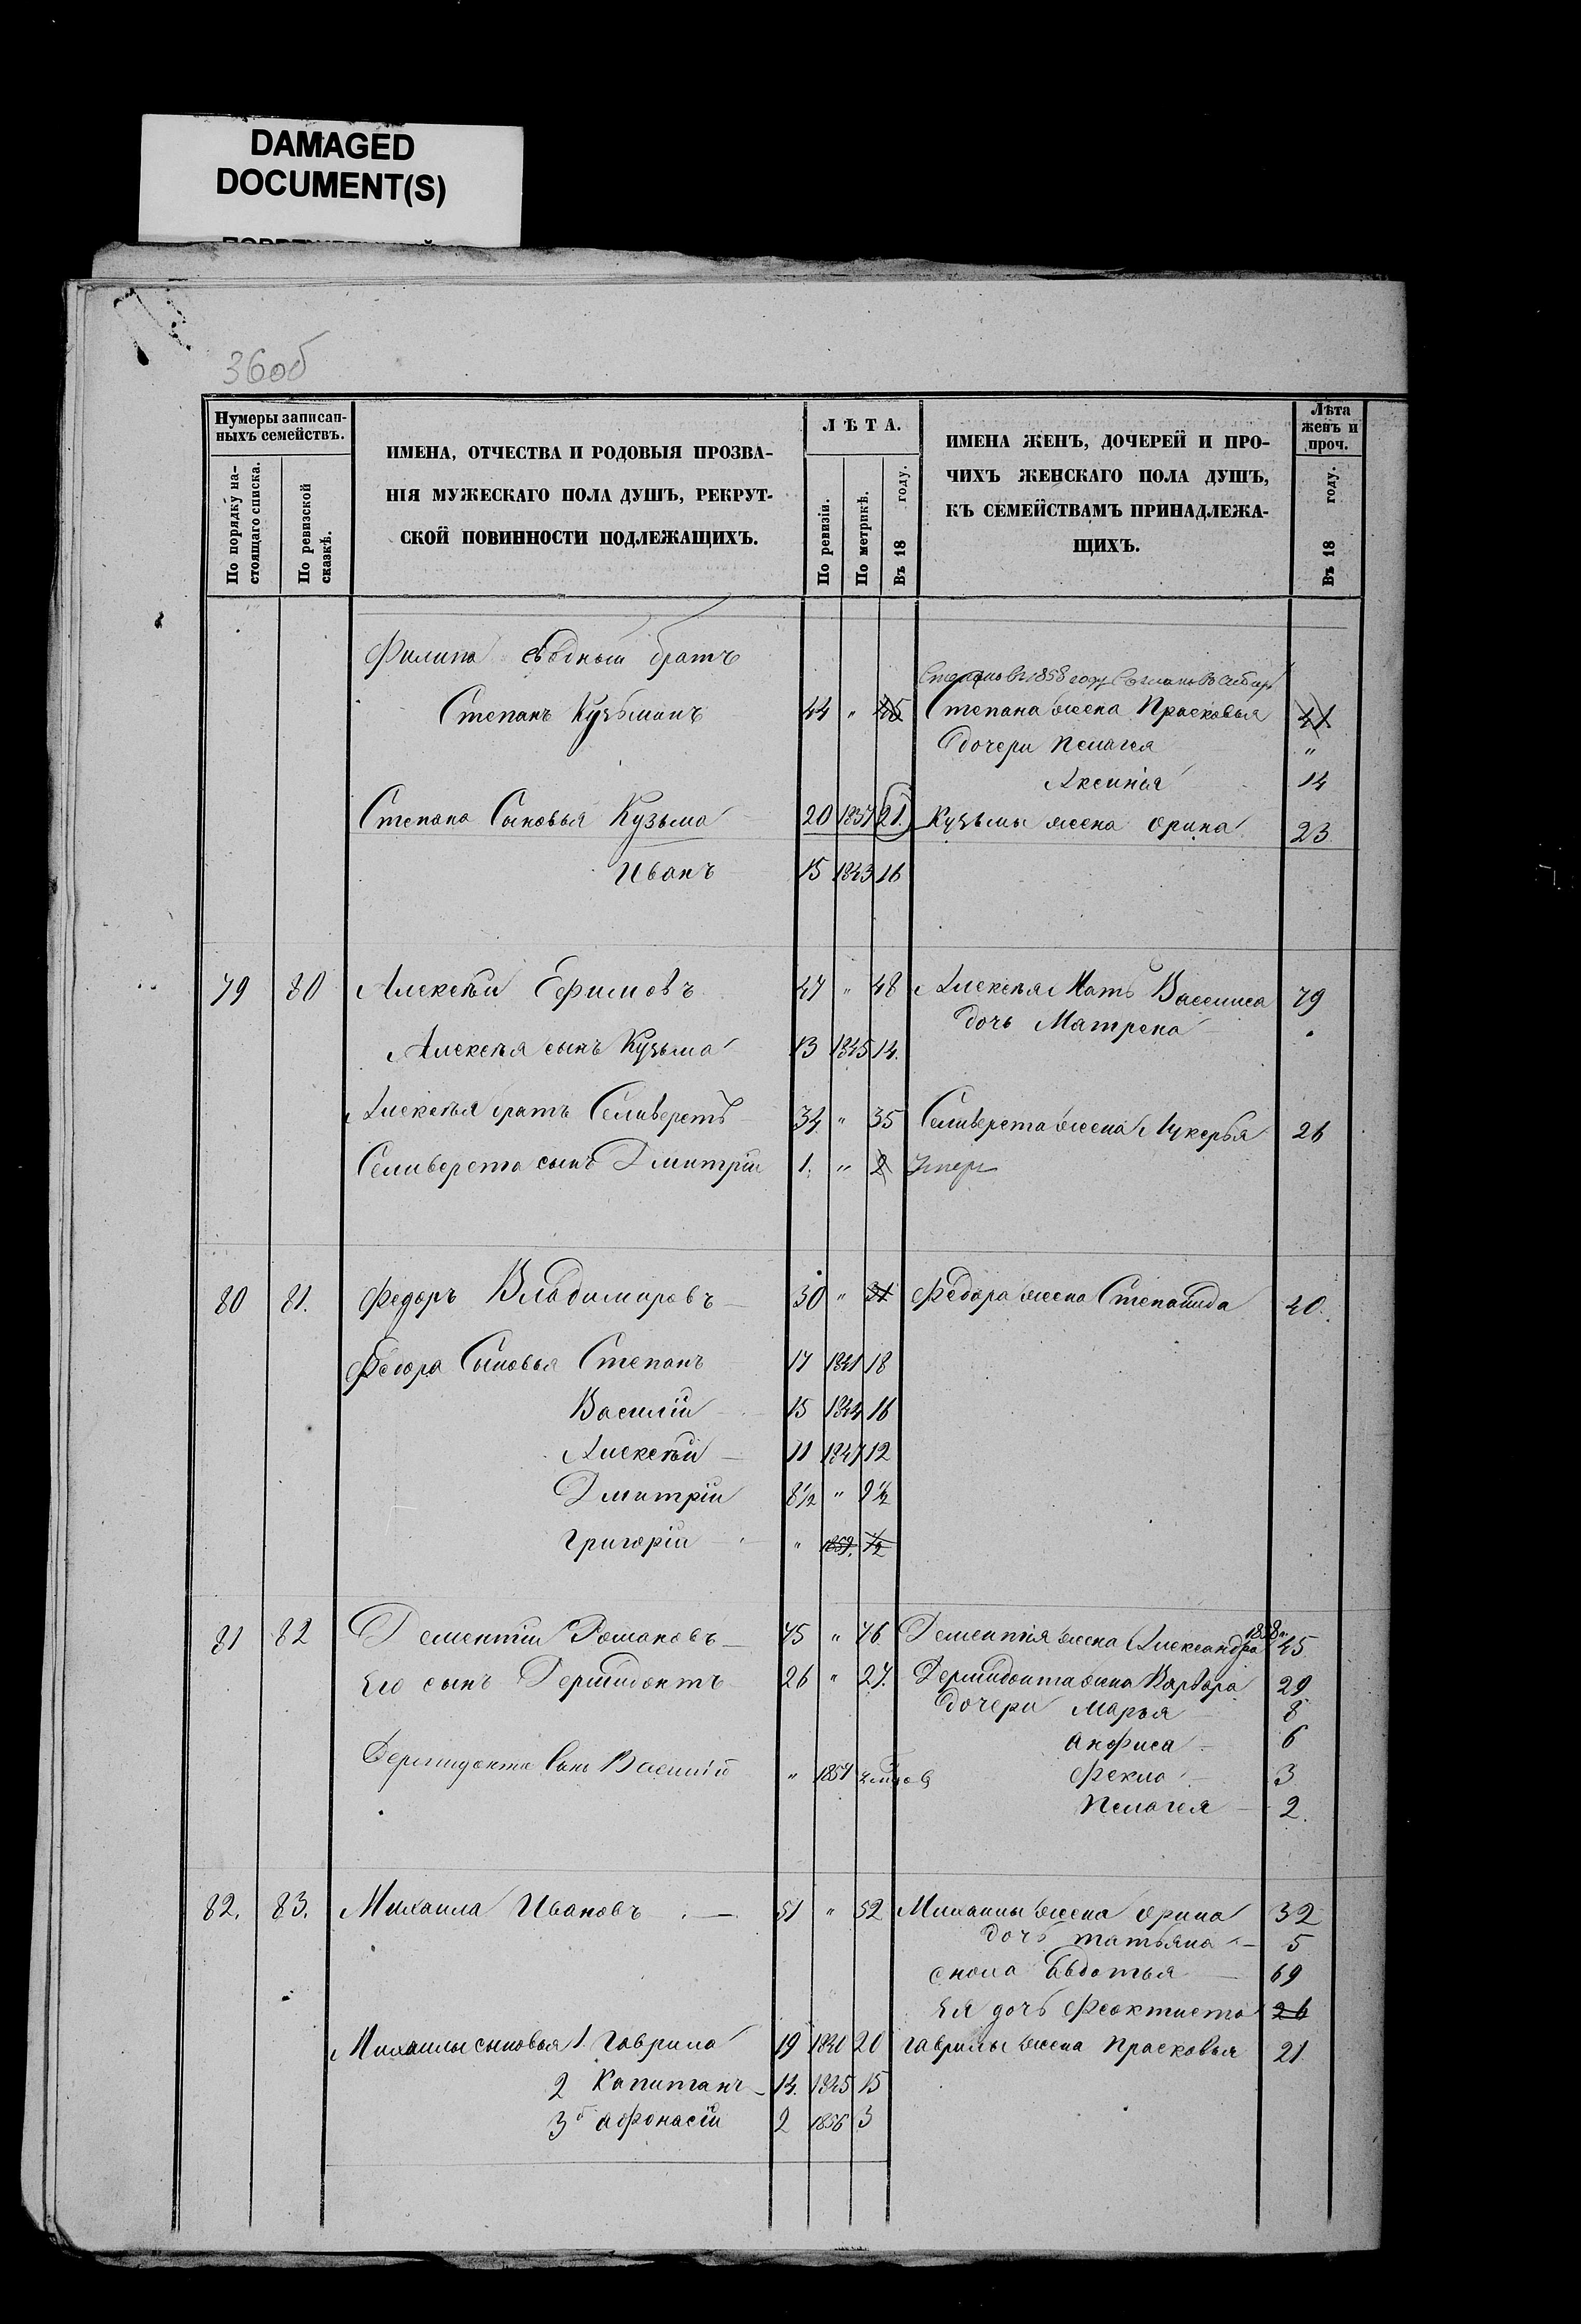 DAMAGED
DOCUMENT(S)
36об
Нумеры записан-
ныхъ семействъ.
По порядку на-
стоящаго списка.
По ревизской
сказкѣ.
ИМЕНА, ОТЧЕСТВА И РОДОВЫЯ ПРОЗВА-
НІЯ МУЖЕСКАГО ПОЛА ДУШЪ, РЕКРУТ-
СКОЙ ПОВИННОСТИ ПОДЛЕЖАЩИХЪ.
ЛѢТА.
По ревизіи.
По метрикѣ.
Въ 18 году.
ИМЕНА ЖЕНЪ, ДОЧЕРЕЙ И ПРО-
ЧИХЪ ЖЕНСКАГО ПОЛА ДУШЪ,
КЪ СЕМЕЙСТВАМЪ ПРИНАДЛЕЖА-
ЩИХЪ.
Лѣта
женъ и
проч.
Въ 18 году.
Филипа сводный братъ
Степанъ въ 1858 году Сосланъ въ Сибирь
Степанъ Кузьминъ 44 " 45 Степана жена Прасковья 41
дочери Пелагея "
Аксинья 14
Степана Сыновья Кузьма 20 1837 21. Кузьмы жена Орина 23
Иванъ 15 1843 16
79 80 Алексѣй Ефимовъ 47 " 48 Алексѣя Мать Васеииса 79
дочь Матрена
Алексѣя сынъ Кузьма 13 1845 14.
Алексѣя братъ Селиверстъ 34 " 35 Селиверста жена Лукерья 26
Селиверста сынъ Дмитрій 1. " 2 Умеръ
80 81. Федоръ Владимировъ 30 " 31 Федора жена Степанида 40.
Федора Сыновья Степанъ 17 1841 18
Василій 15 1844 16
Алексѣй 11 1847 12
Дмитрій 8½ " 9½
Григорій " 1859. ½
81 82 Дементій Романовъ 75 " 76 Дементія жена Александра 1858 45
Его сынъ Дермидонтъ 26 " 27. Дермидонта жена Варвара 29
дочери Марья 8
Анфиса 6
Дермидонта Сынъ Василій " 1857 Фекла 3
Пелагея 2.
82. 83. Михаила Ивановъ 51 " 52 Михаилы жена Орина 32
дочь Татьяна 5
сноха Авдотья 69
Ея дочь Феоктиста 26
Михаилы сыновья 1. Гаврила 19 1840 20 Гаврилы жена Прасковья 21.
2 Капитанъ 14. 1845 15
3й Афонасій 2 1856 3